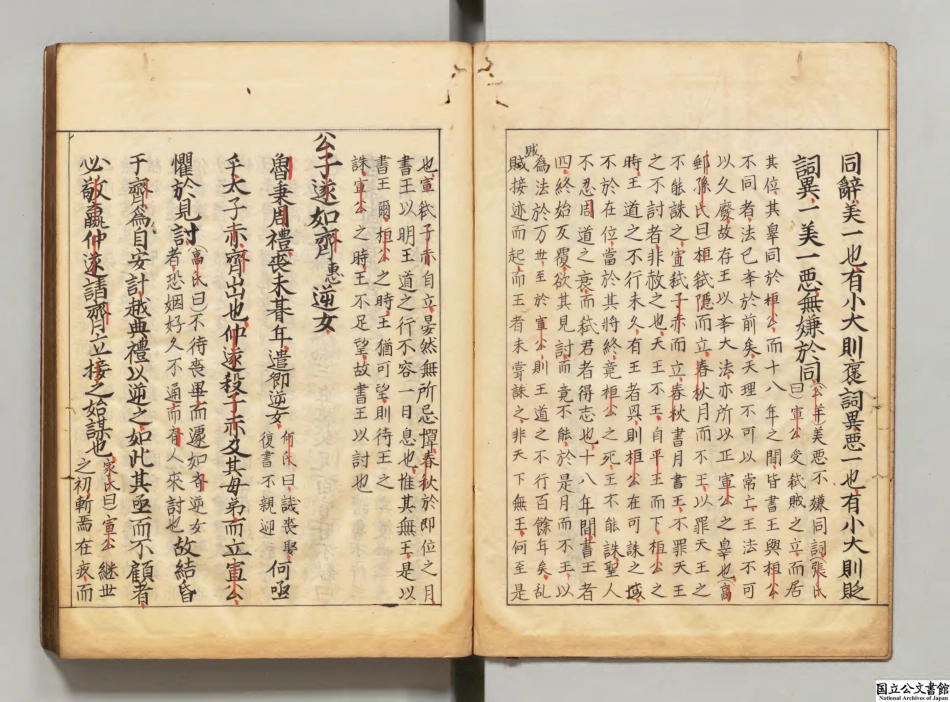 同辭美一也有小大則褒詞異惡一也有小大則貶
詞異一美一惡無嫌於同公羊美惡不嫌同詞張氏曰宣公受弑賊之立而居
其位其辠同於桓公而十八年之間皆書王與桓公
不同者法已夲於前矣天理不可以常亡王法不可
以久廢故存王以夲大法亦所以正宣公之辠也高
郵孫氏曰桓弑隱而立春秋月而不王以罪天王之
不能誅之宣弑子赤而立春秋書月書王不罪天王
之不討者非赦之也天王不王自平王而下桓公之
時王道之不行未久有王者興則桓公在可誅之域
不於在位當於其將終竟桓公之死王不能誅聖人
不忍周道之衰而弑君者得志也十八年間書王者
四終始反覆欲其見討而竟不能於是月而不王以
為法於万世至於宣公則王道之不行百餘年矣乱
賊
賊接迹而起而王者未甞誅之非天下無王何至是
也宣弑子赤自立晏然無所忌憚春秋於即位之月
書王以明王道之行不容一日息也惟其無王是以
書王爾桓公之時王猶可望則待王之
誅宣公之時王不足望故書王以討也
公子遂如齊逆女
惠
魯秉周禮喪未朞年遣卿逆女何氏曰譏喪娶復書不親迎何亟
乎太子赤齊出也仲遂殺子赤及其母弟而立宣公
懼於見討高氏曰不待喪畢而遽如齊逆女者恐姻好久不通而有人來討也故結昏
于齊為自安計越典禮以逆之如此其亟而不顧者
必敬嬴仲遂請齊立接之始謀也家氏曰宣公継世之初斬焉在疚而
国立公文書館
National Archives of Japan